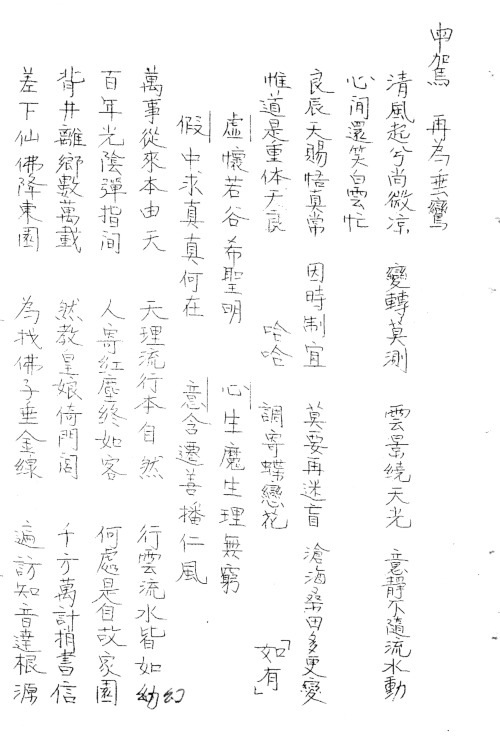 申駕　再為垂鸞
清風起兮尚微凉　變轉莫測　雲景繞天光　意靜不隨流水動
心闲還笑白雲忙
良辰天賜悟真常　因時制宜　莫妄再迷盲　滄海桑田多更變
惟道是重体天良　哈哈　調寄蝶戀花　「如有」
虛懷若谷希聖明　心生魔生理無窮
假中求真真何在　意含遷善播仁風
萬事從來本由天　天理流行本自然　行雲流水皆如幼幻
百年光陰彈指间　人寄紅塵終如客　何處是自故家園
背井離鄉數萬載　然教皇娘倚門闾　千方萬計捎書信
差下仙佛降東園　為找佛子垂金線　遍訪知音達根源